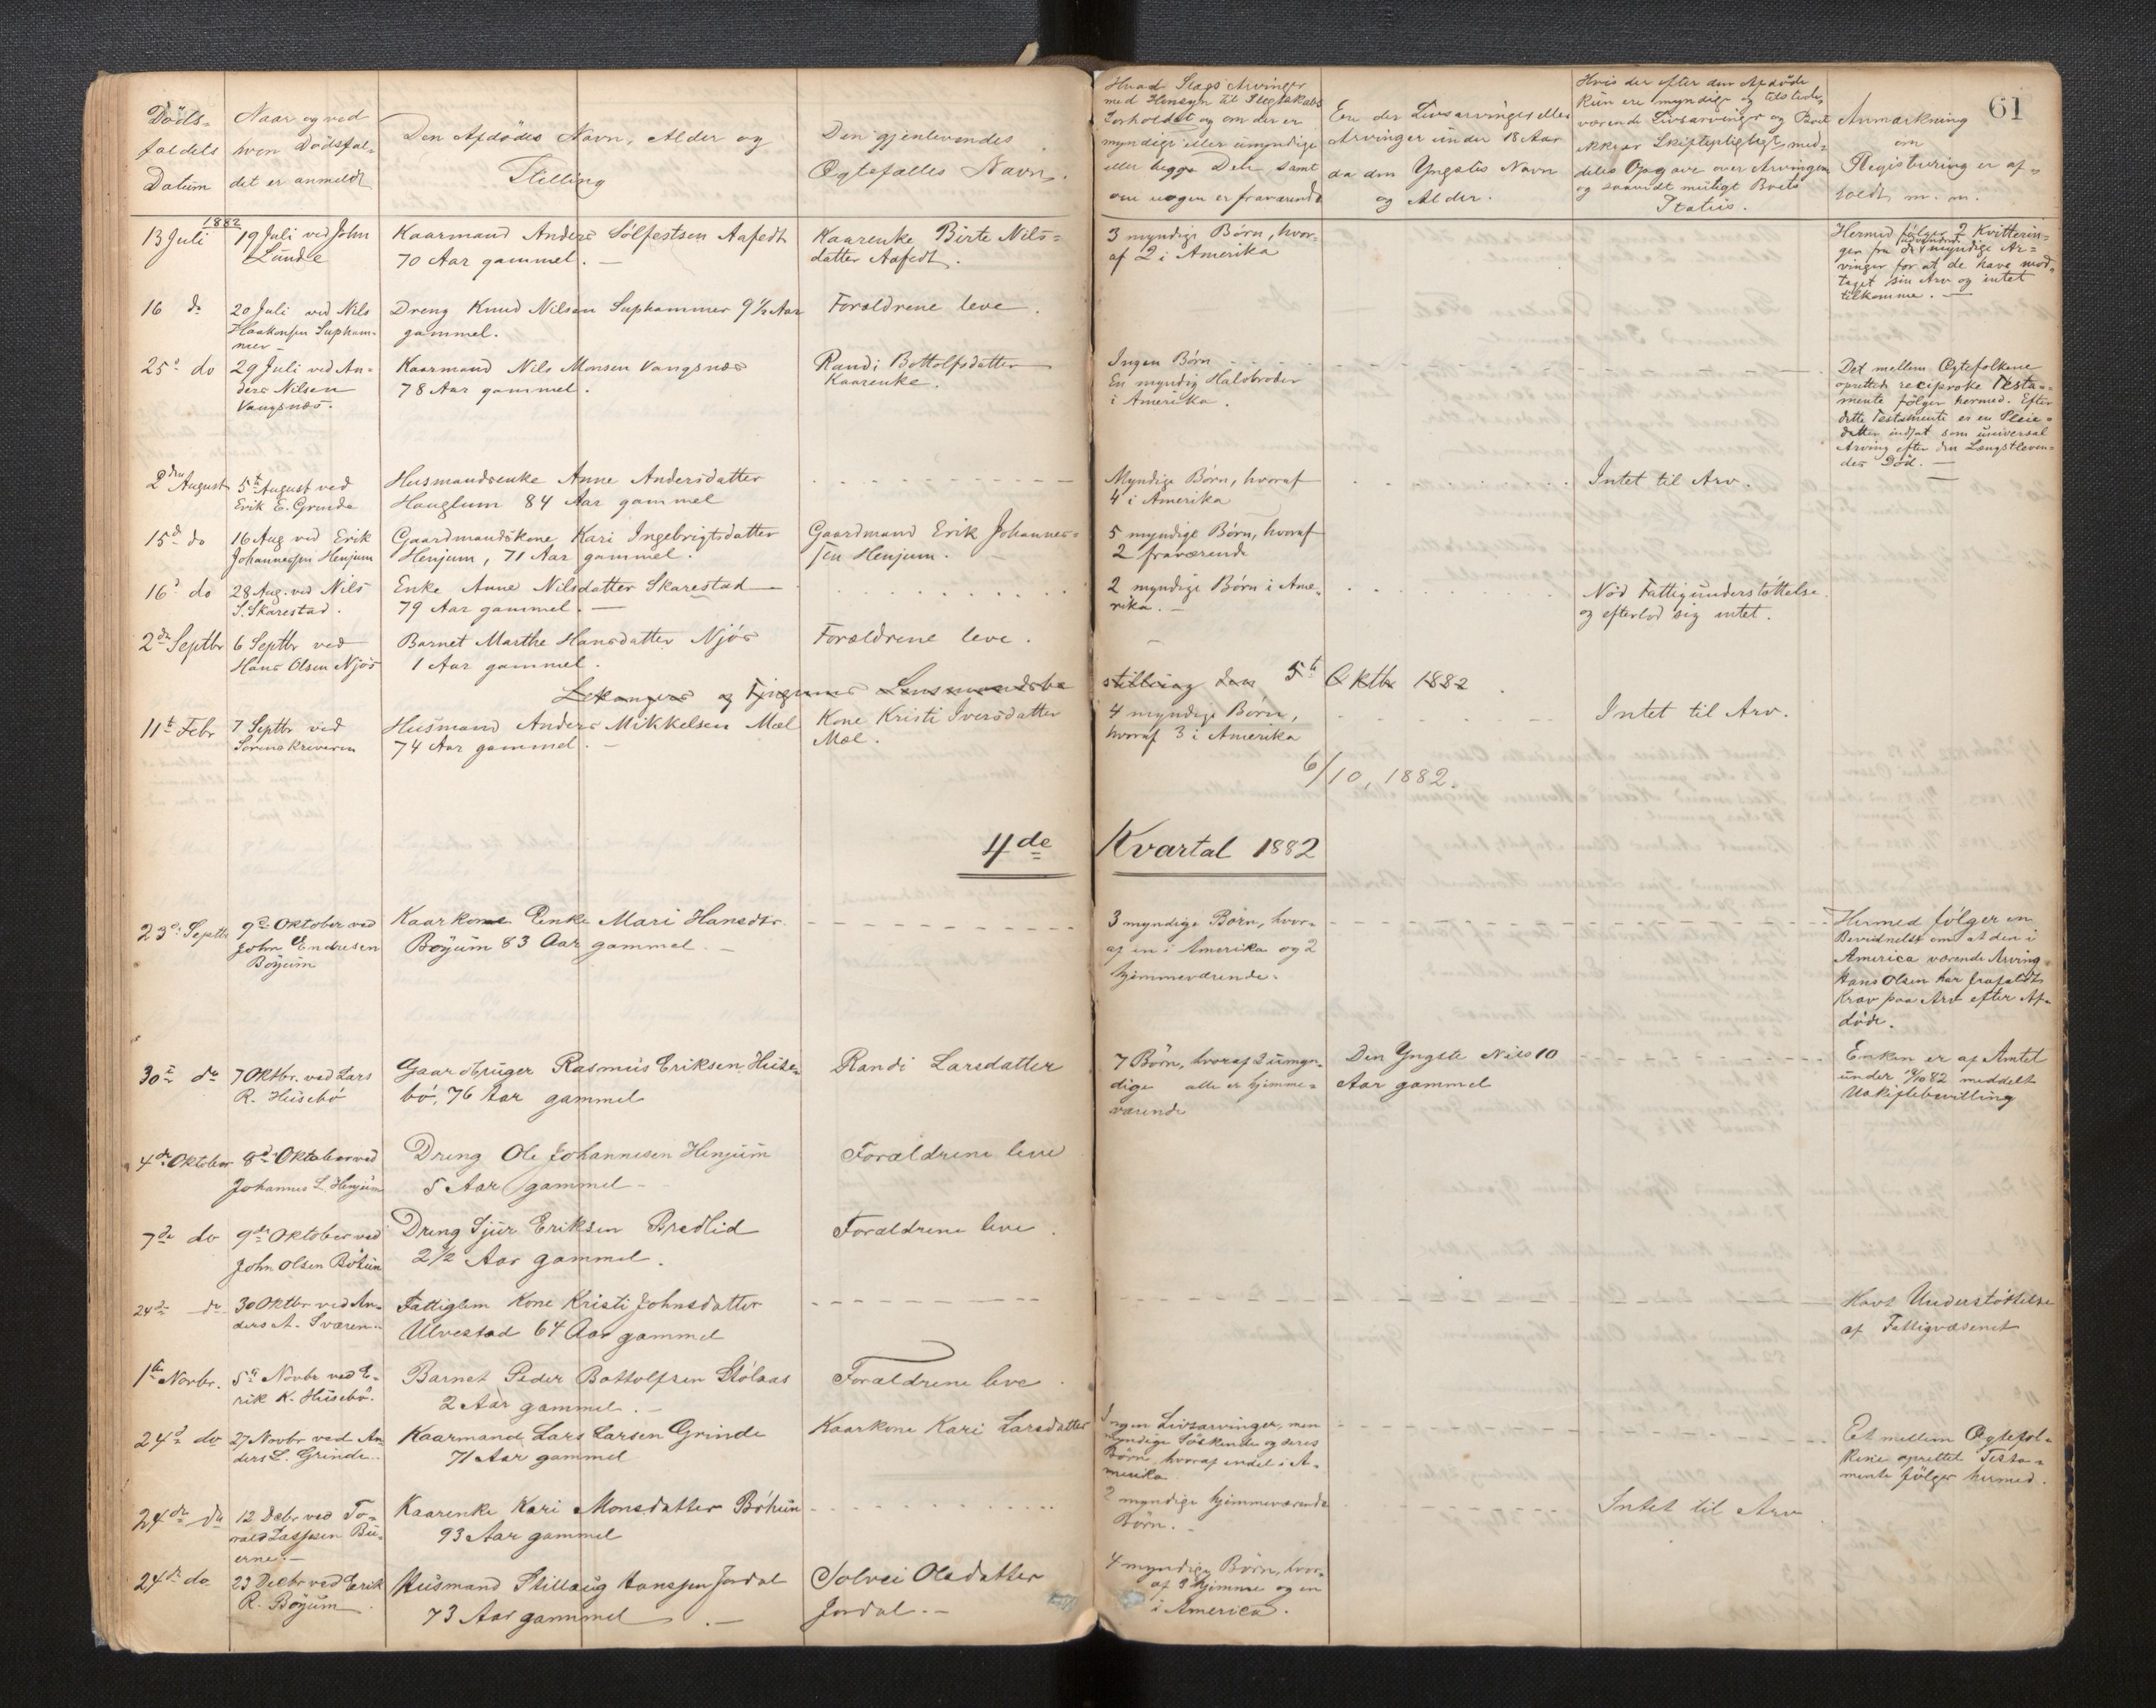 61
Döds-
faldets
Datum
Naar og ved
hvem Dödsfal-
det er anmeldt
Den Afdödes Navn, Alder og
Stilling
Den gjenlevendes
Ægtefælles Navn.
Hvad Slags Arvinger
med Hensyn til Slegtskabs
Forholdet og om der er
myndige eller umyndige
eller begge Dele samt
om nogen er fraværende
Er der Livsarvinger eller
Arvinger under 18 Aar
da den Yngstes Navn
og Alder.
Hvis der efter den Afdöde
kun ere myndige og tilstede-
værende Livsarvinger og Boet
ikke er Skiftepligtigt, med-
deles Opgave over Arvingen
og saavidt muligt Boets
Status.
Anmærkning
om
Registrering er af-
holdt m. m.
1882
13 Juli
19 Juli ved John
Lunde
Kaarmand Anders Solfestsen Aafedt
70 Aar gammel. —
Kaarenke Birte Nils-
datter Aafedt.
3 myndige Börn, hvor-
af 2 i Amerika
Hermed følger 2 Kvitterin-
ger fra de myndige Ar-
vinger for at de have mod-
taget sin Arv og intet
tilkomme. —
16 do
20 Juli ved Nils
Haakonsen Supham-
mer —
Dreng Knud Nilsen Suphammer 9 1/2 Aar
gammel.
Forældrene leve.
25 do
29 Juli ved An-
ders Nilsen
Vangsnæs.
Kaarmand Nils Monsen Vangsnæs
78 Aar gammel.
Randi Bottolfsdatter
Kaarenke.
Ingen Börn
En myndig Halvbroder
i Amerika.
Det mellem Ægtefolkene
oprettede reciproke Testa-
mente følger hermed. Efter
dette Testamente er en Pleie-
datter indsat som universal
Arving efter den Længstleven-
des Död. —
2den August
5te August ved
Erik E. Grinde
Husmandsenke Anne Andersdatter
Hauglum 84 Aar gammel
Myndige Börn, hvoraf
4 i Amerika
Intet til Arv.
15de do
16 Aug. ved Erik
Johannessen Henjum
Gaardmandskone Kari Ingebrigtsdatter
Henjum, 71 Aar gammel.
Gaardmand Erik Johannes-
sen Henjum.
5 myndige Börn, hvoraf
2 fraværende
16 do
28 Aug. ved Nils
S. Skarestad.
Enke Anne Nilsdatter Skarestad
79 Aar gammel. —
2 myndige Börn i Ame-
rika. —
Nöd Fattigunderstöttelse
og efterlod sig intet.
2den Septbr
6 Septbr ved
Hans Olsen Njös
Barnet Marthe Hansdatter Njös
1 Aar gammel.
Forældrene leve.
Lekangers og Tjugums Lensmandsbe
stilling den 5te Oktbr 1882
11te Febr
7 Septbr ved
Sorenskriveren
Husmand Anders Mikkelsen Mæl
74 Aar gammel. —
Kone Kristi Iversdatter
Mæl.
4 myndige Börn,
hvoraf 3 i Amerika
Intet til Arv.
6/10, 1882.
4de Kvartal 1882
23de Septbr
9de Oktober ved
John Endresen
Böyum
Kaarkone Enke Mari Hansdtr.
Böyum 83 Aar gammel. —
3 myndige Börn, hvor-
af en i Amerika og 2
hjemmeværende.
Hermed følger en
Bevidnelse om at den i
America værende Arving
Hans Olsen har frafaldt
Krav paa Arv efter Af-
döde.
30te do
7 Oktbr. ved Lars
R. Husebö
Gaardbruger Rasmus Eriksen Huse-
bö, 76 Aar gammel
Randi Larsdatter
7 Börn, hvoraf 2 umyn-
dige alle er hjemme-
værende
Den Yngste Nils 10
Aar gammel
Enken er af Amtet
under 19/10 82 meddelt
Uskiftebevilling
4de Oktober
8de Oktober ved
Johannes L. Henjum
Dreng Ole Johannesen Henjum
5 Aar gammel —
Forældrene leve
7de do
9de Oktober ved
John Olsen Böthun
Dreng Sjur Eriksen Bredlid
2 1/2 Aar gammel.
Forældrene leve.
24de do
30 Oktbr ved An-
ders A. Sværen
Fattiglem Kone Kristi Johnsdatter
Ulvestad 64 Aar gammel
Havt Understöttelse
af Fattigvæsenet
1te Novbr.
5te Novbr ved E-
rik K. Husebö.
Barnet Peder Bottolfsen Stölaas
2 Aar gammel. —
Forældrene leve
24de do
27 Novbr ved An-
ders L. Grinde.
Kaarmand Lars Larsen Grinde
71 Aar gammel
Kaarkone Kari Larsdatter
Ingen Livsarvinger, men
myndige Söskende og deres
Börn, hvoraf endel i A-
merika.
Et mellem Ægtefol-
kene oprettet Testa-
mente følger hermed.
24de do
12 Debr ved To-
rald Lassesen Bu-
erne. —
Kaarenke Kari Monsdatter Böthun
93 Aar gammel
2 myndige hjemmeværende
Börn. —
Intet til Arv
24de do
23 Decbr ved Erik
R. Böyum
Husmand Stillaug Hanssen Jordal
73 Aar gammel —
Solvei Olsdatter
Jordal. —
4 myndige Börn, hvor-
af 3 hjemme og en
i America.